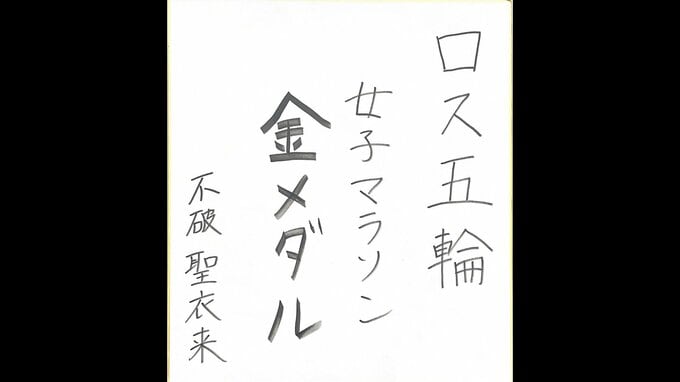 ロス五輪
女子マラソン
金メダル
不破聖衣来